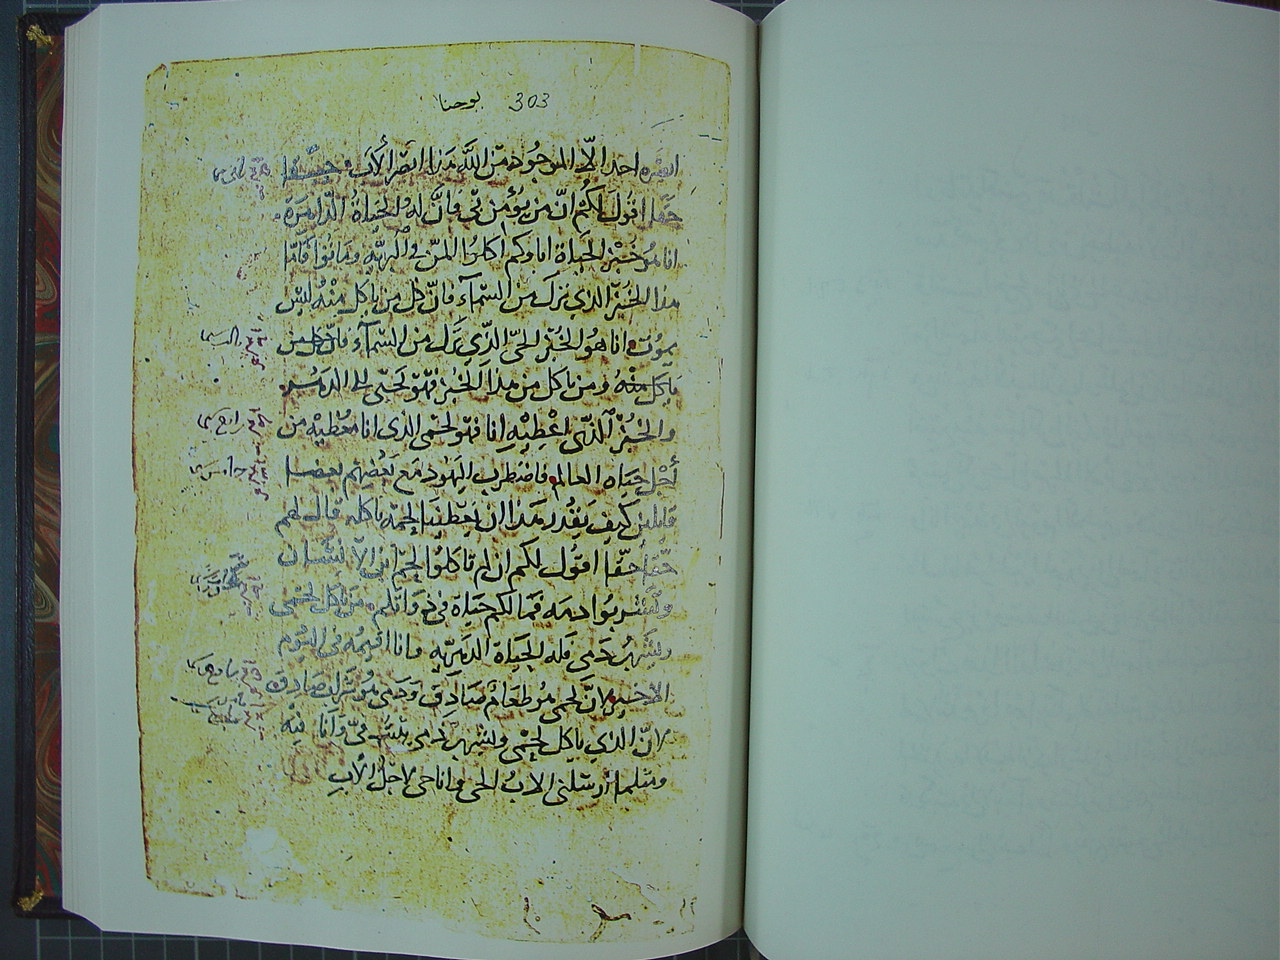 يوحنا 303
ابصره احد الّا الموجود من الله هذا ابصر الأب حقّا
حقا اقول لكم انّ من يؤمن بي فانّ له الحياة الدّايمة
انا هو خبز الحياة اباوكم اكلوا المنّ في البريّه وماتوا فامّا
هذا الخبز الذي نزل من السّمآء فانّ كل من ياكل منه ليس
يموت انا هو الخبز الحيّ الذّي نزل من السّمآء فان كل من
ياكل منه ومن ياكل من هذا الخبز فهو يحيى الى الدهر
والخبز الذّي اعْطِيْهِ انا فهو لحمى الذى انا معْطيْه من
أجل حياه العالم فاضطرب اليهود مع بعضهم بعضا
قايلين كيف يقدر هذا ان يعطينا لحمه ناكله قال لهم
حقّا حقّا اقول لكم ان لم تاكلوا لحم ابن الانسان
وتشربوا دمه فما لكم حياة في ذواتكم من ياكل لحمى
ويشرب دمى فله الحياة الدهريّه وانا اقيمه في اليوم
الاخير لانّ لحمى هو طعام صادق ودمى هو شراب صادق
لانّ الذي ياكل لحمى ويشرب دمى يثبت فيّ وانا فيه
ومثلما أرسلنى الاب الحى وانا حى لاجل الأب